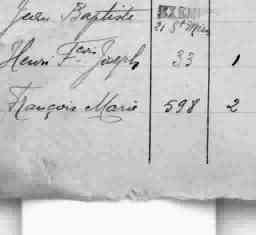 Jean Baptiste
Henri F. Joseph 33 1
François Marie 598 2